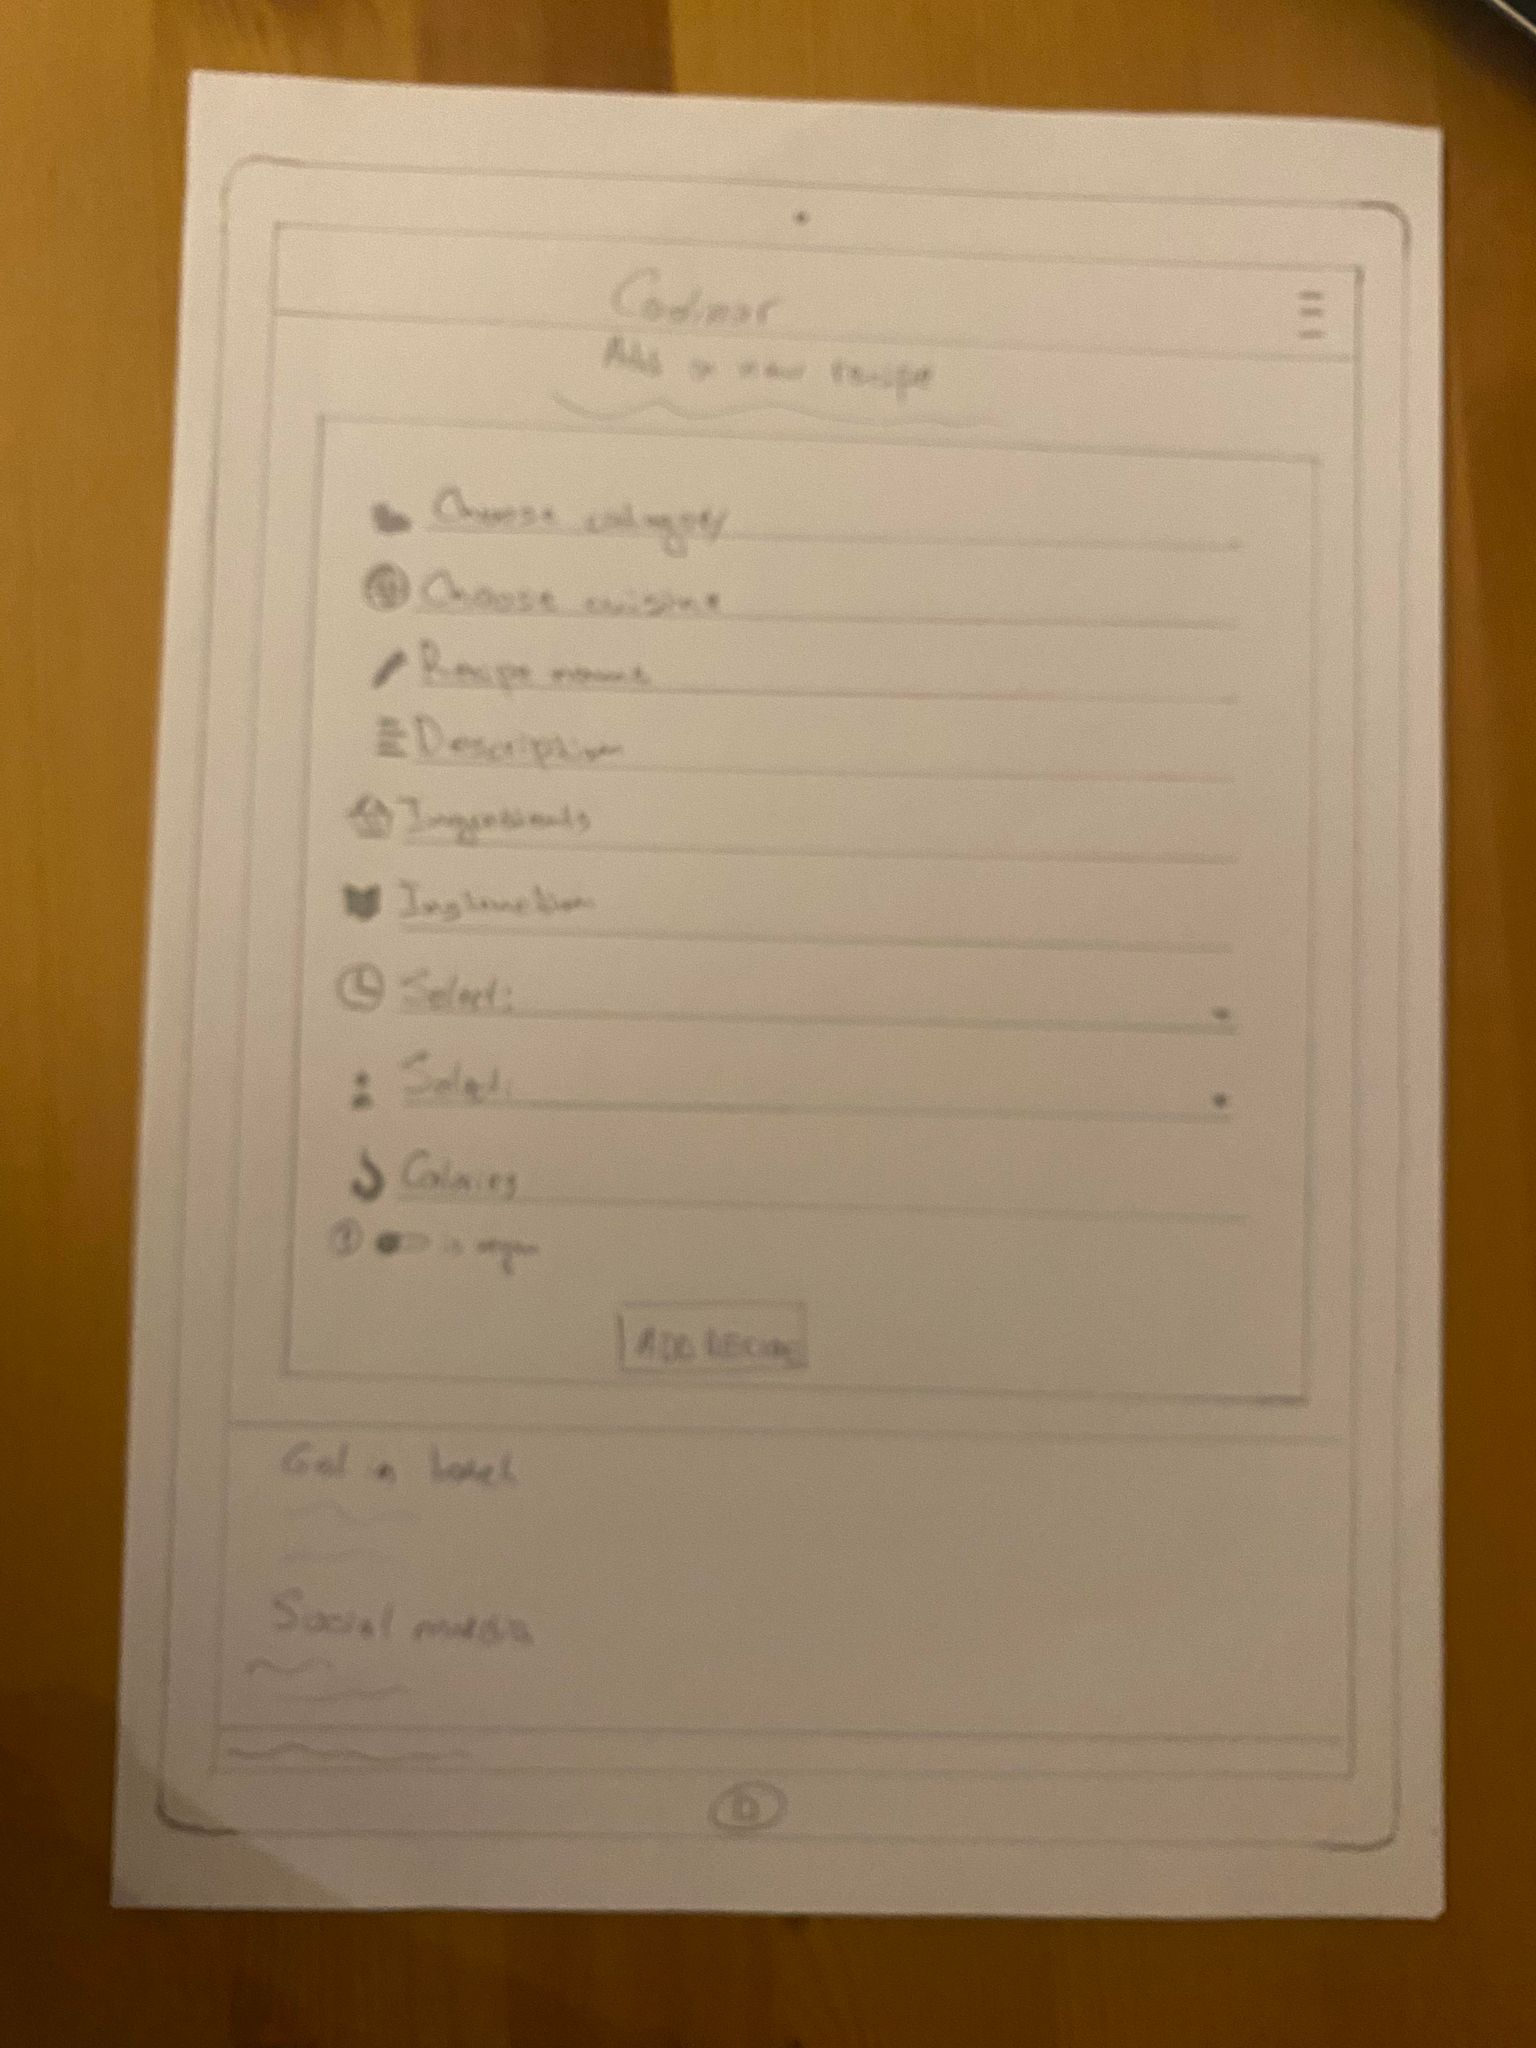 Add a new recipe
Choose category
Choose cuisine
Recipe name
Description
Ingredients
Instruction
Select:
Select:
Calories
is vegan
ADD RECIPE
Get in touch
Social media